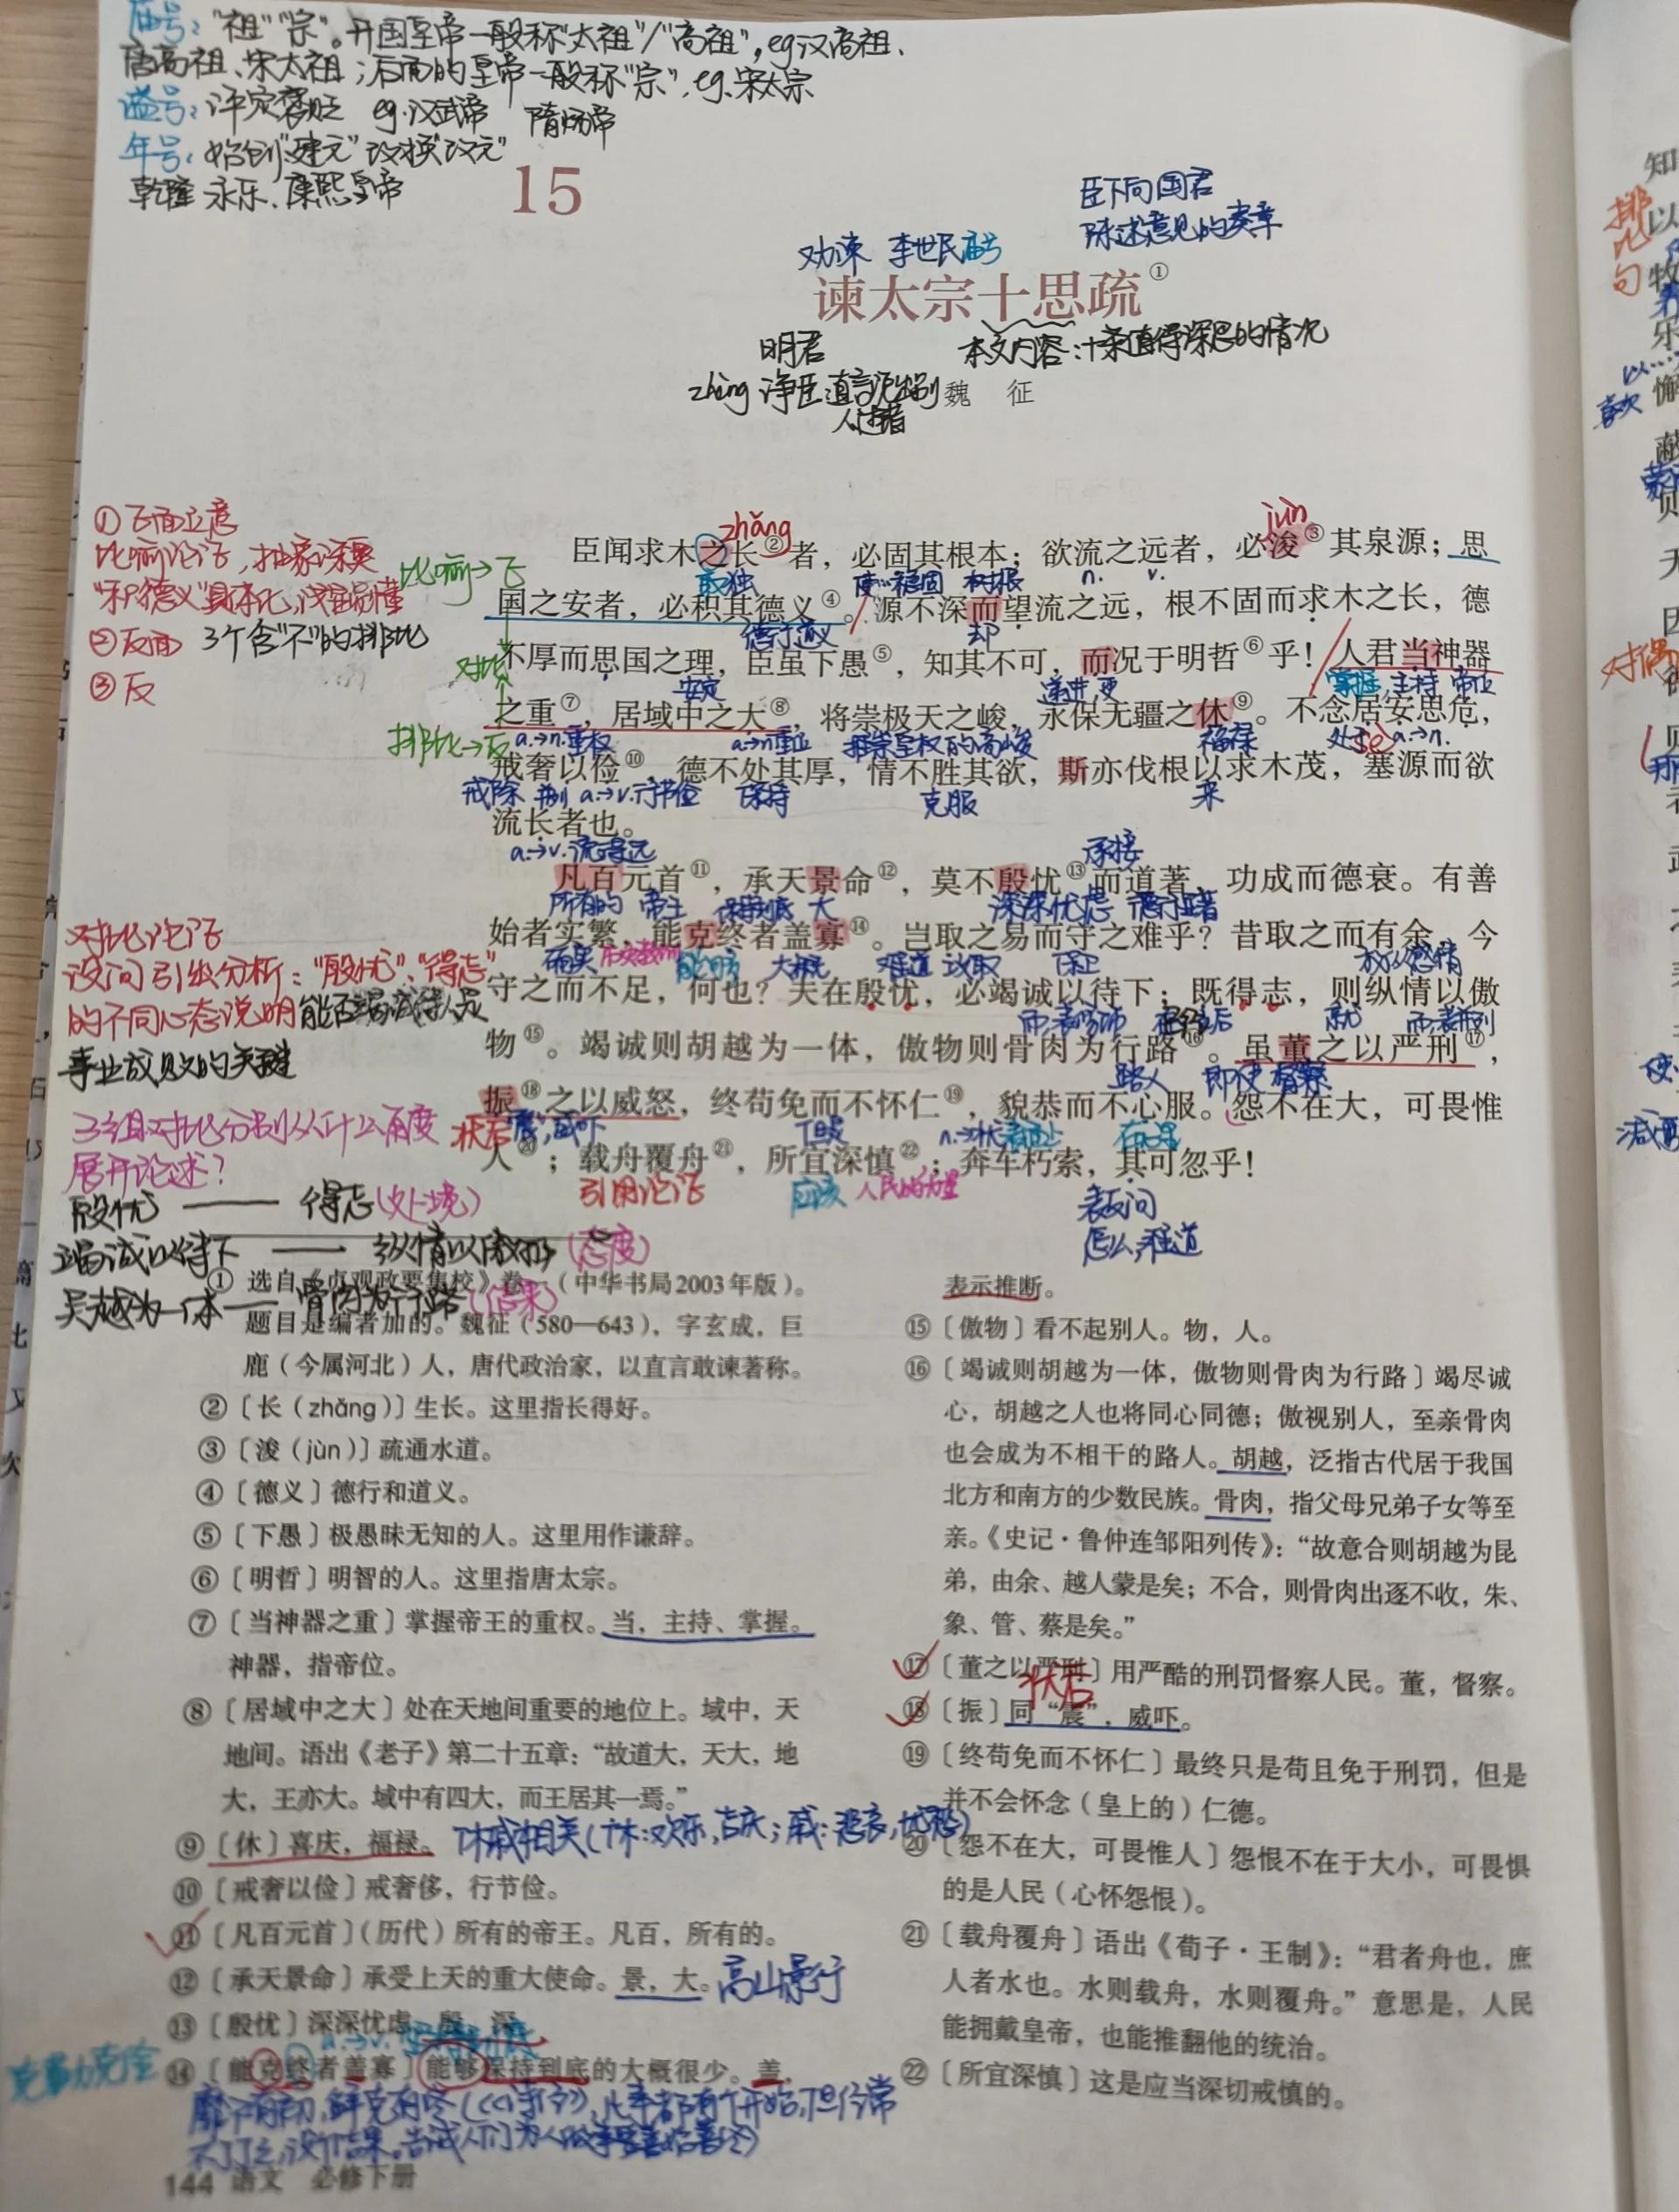 庙号："祖""宗"。开国皇帝一般称"太祖"/"高祖"，eg汉高祖、
唐高祖、宋太祖；后面的皇帝一般称"宗"，eg.宋太宗
谥号：评定褒贬 eg.汉武帝 隋炀帝
年号：始创"建元"改换"改元"
乾隆 永乐、康熙皇帝
15
臣下向国君
陈述意见的奏章
劝谏 李世民庙号
谏太宗十思疏①
明君 本文内容：十条值得深思的情况
zhèng 诤臣：直言 别
人过者
魏 征
①正面立意
比喻论证，抽象深奥
"积德义"具体化，浅显易懂
②反面 3个含"不"的排比
③反
比喻→正
对比
排比→反
zhǎng jùn
臣闻求木之长②者，必固其根本；欲流之远者，必浚③其泉源；思
取独 使…稳固 树根 n. v.
国之安者，必积其德义④。源不深而望流之远，根不固而求木之长，德
德行道义 却
不厚而思国之理，臣虽下愚⑤，知其不可，而况于明哲⑥乎！人君当神器
安定 递进,更 掌握 主持 帝位
之重⑦，居域中之大⑧，将崇极天之峻，永保无疆之休⑨。不念居安思危，
a.→n.重权 a.→n重位 推崇皇权的高峻 福禄 处于 a.→n.
戒奢以俭⑩，德不处其厚，情不胜其欲，斯亦伐根以求木茂，塞源而欲
戒除 a.→v.行节俭 保持 克服 来
流长者也。
a.→v.流得远 承接
凡百元首⑪，承天景命⑫，莫不殷忧⑬而道著，功成而德衰。有善
所有的 帝王 大 深深忧虑 德行显著
始者实繁，能克终者盖寡⑭。岂取之易而守之难乎？昔取之而有余，今
确实 能够 大概 难道 攻取 保卫 放纵感情
守之而不足，何也？夫在殷忧，必竭诚以待下；既得志，则纵情以傲
而表修饰 就 而表并列
物⑮。竭诚则胡越为一体，傲物则骨肉为行路⑯。虽董之以严刑⑰，
路人 即使 督察
振⑱之以威怒，终苟免而不怀仁⑲，貌恭而不心服。怨不在大，可畏惟
状后 "震"，威吓 但是 n.→状 在心里
人⑳；载舟覆舟㉑，所宜深慎㉒；奔车朽索，其可忽乎！
引用论证 应该 人民的力量 表反问
怎么，难道
对比论证
设问引出分析："殷忧"、"得志"
的不同心态说明能否竭诚待人是
事业成败的关键
3组对比分别从什么角度
展开论述？
殷忧 —— 得志(处境)
竭诚以待下 —— 纵情以傲物(态度)
吴越为一体 —— 骨肉为行路(结果)
① 选自《贞观政要集校》卷一（中华书局2003年版）。
题目是编者加的。魏征（580—643），字玄成，巨
鹿（今属河北）人，唐代政治家，以直言敢谏著称。
②〔长（zhǎng）〕生长。这里指长得好。
③〔浚（jùn）〕疏通水道。
④〔德义〕德行和道义。
⑤〔下愚〕极愚昧无知的人。这里用作谦辞。
⑥〔明哲〕明智的人。这里指唐太宗。
⑦〔当神器之重〕掌握帝王的重权。当，主持、掌握。
神器，指帝位。
⑧〔居域中之大〕处在天地间重要的地位上。域中，天
地间。语出《老子》第二十五章："故道大，天大，地
大，王亦大。域中有四大，而王居其一焉。"
⑨〔休〕喜庆，福禄。 休戚相关(休：欢乐，吉庆；戚：悲哀，忧愁)
⑩〔戒奢以俭〕戒奢侈，行节俭。
⑪〔凡百元首〕（历代）所有的帝王。凡百，所有的。
⑫〔承天景命〕承受上天的重大使命。景，大。 高山景行
⑬〔殷忧〕深深忧虑。殷，深。
a.→v.
克勤克俭
⑭〔能克终者盖寡〕能够保持到底的大概很少。盖，
靡不有初，鲜克有终(《诗》，此事都有个开始，但经常
不了了之，没个结果。告诫人们为人做事要善始善终)
144 语文 必修下册
表示推断。
⑮〔傲物〕看不起别人。物，人。
⑯〔竭诚则胡越为一体，傲物则骨肉为行路〕竭尽诚
心，胡越之人也将同心同德；傲视别人，至亲骨肉
也会成为不相干的路人。胡越，泛指古代居于我国
北方和南方的少数民族。骨肉，指父母兄弟子女等至
亲。《史记·鲁仲连邹阳列传》："故意合则胡越为昆
弟，由余、越人蒙是矣；不合，则骨肉出逐不收，朱、
象、管、蔡是矣。"
⑰〔董之以严刑〕用严酷的刑罚督察人民。董，督察。
状后
⑱〔振〕同"震"，威吓。
⑲〔终苟免而不怀仁〕最终只是苟且免于刑罚，但是
并不会怀念（皇上的）仁德。
⑳〔怨不在大，可畏惟人〕怨恨不在于大小，可畏惧
的是人民（心怀怨恨）。
㉑〔载舟覆舟〕语出《荀子·王制》："君者舟也，庶
人者水也。水则载舟，水则覆舟。"意思是，人民
能拥戴皇帝，也能推翻他的统治。
㉒〔所宜深慎〕这是应当深切戒慎的。
排比句
对偶